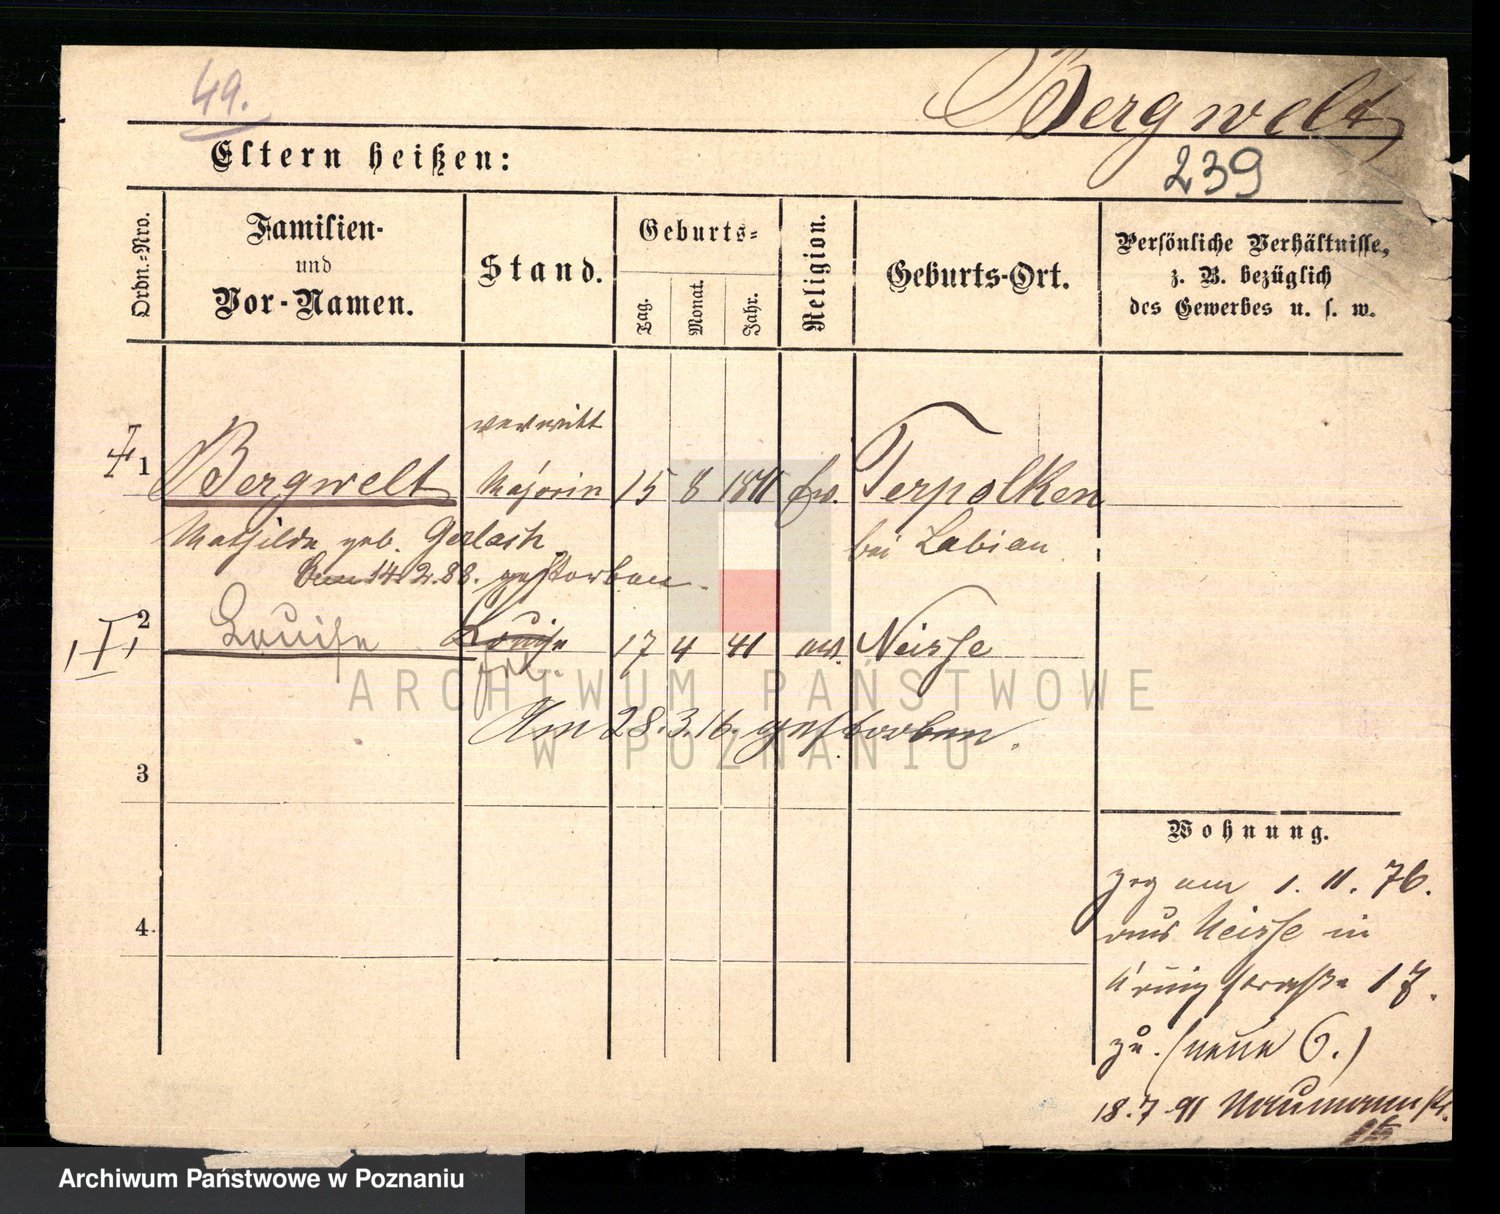 49.
Bergwelt
239
Eltern heißen:
Ordn.-Nro.
Familien-
und
Vor-Namen.
Stand.
Geburts-
Tag.
Monat.
Jahr.
Religion.
Geburts-Ort.
Persönliche Verhältnisse,
z. B. bezüglich
des Gewerbes u. s. w.
verwitt
1 Bergwelt Majorin 15 8 Terpolken
Mathilde geb. Gerlach bei Labiau
14.2.88. gestorben.
2 Louise Louise 17 4 41 ev. Neisse
Am 28.3.16. gestorben.
3
4.
Wohnung.
zog am 1. 11. 76.
aus Neisse in
straße 17.
zu. (neue 6.)
18.7.91 Naumannstr.
ARCHIWUM PAŃSTWOWE
W POZNANIU
Archiwum Państwowe w Poznaniu